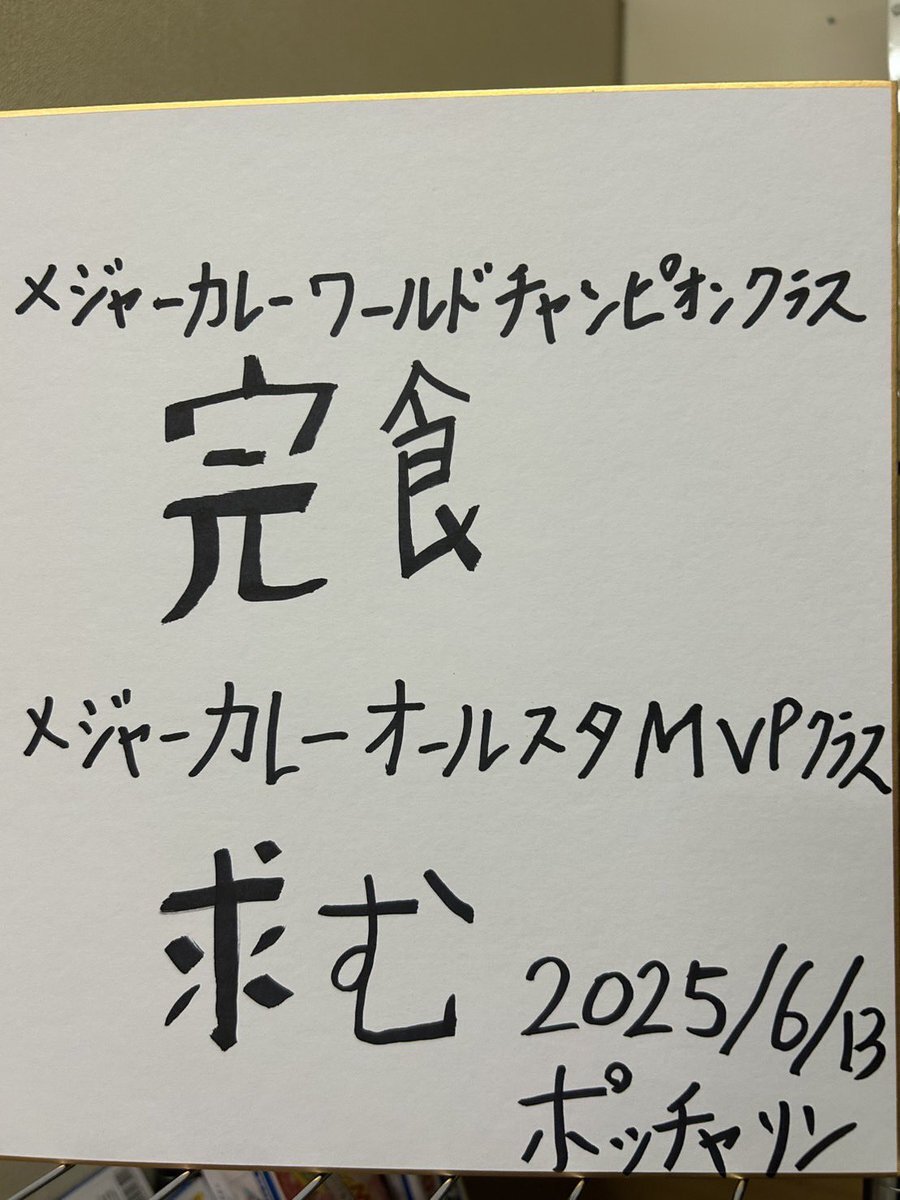 メジャーカレーワールドチャンピオンクラス
完食
メジャーカレーオールスタMVPクラス
求む
2025/6/13
ポッチャリン